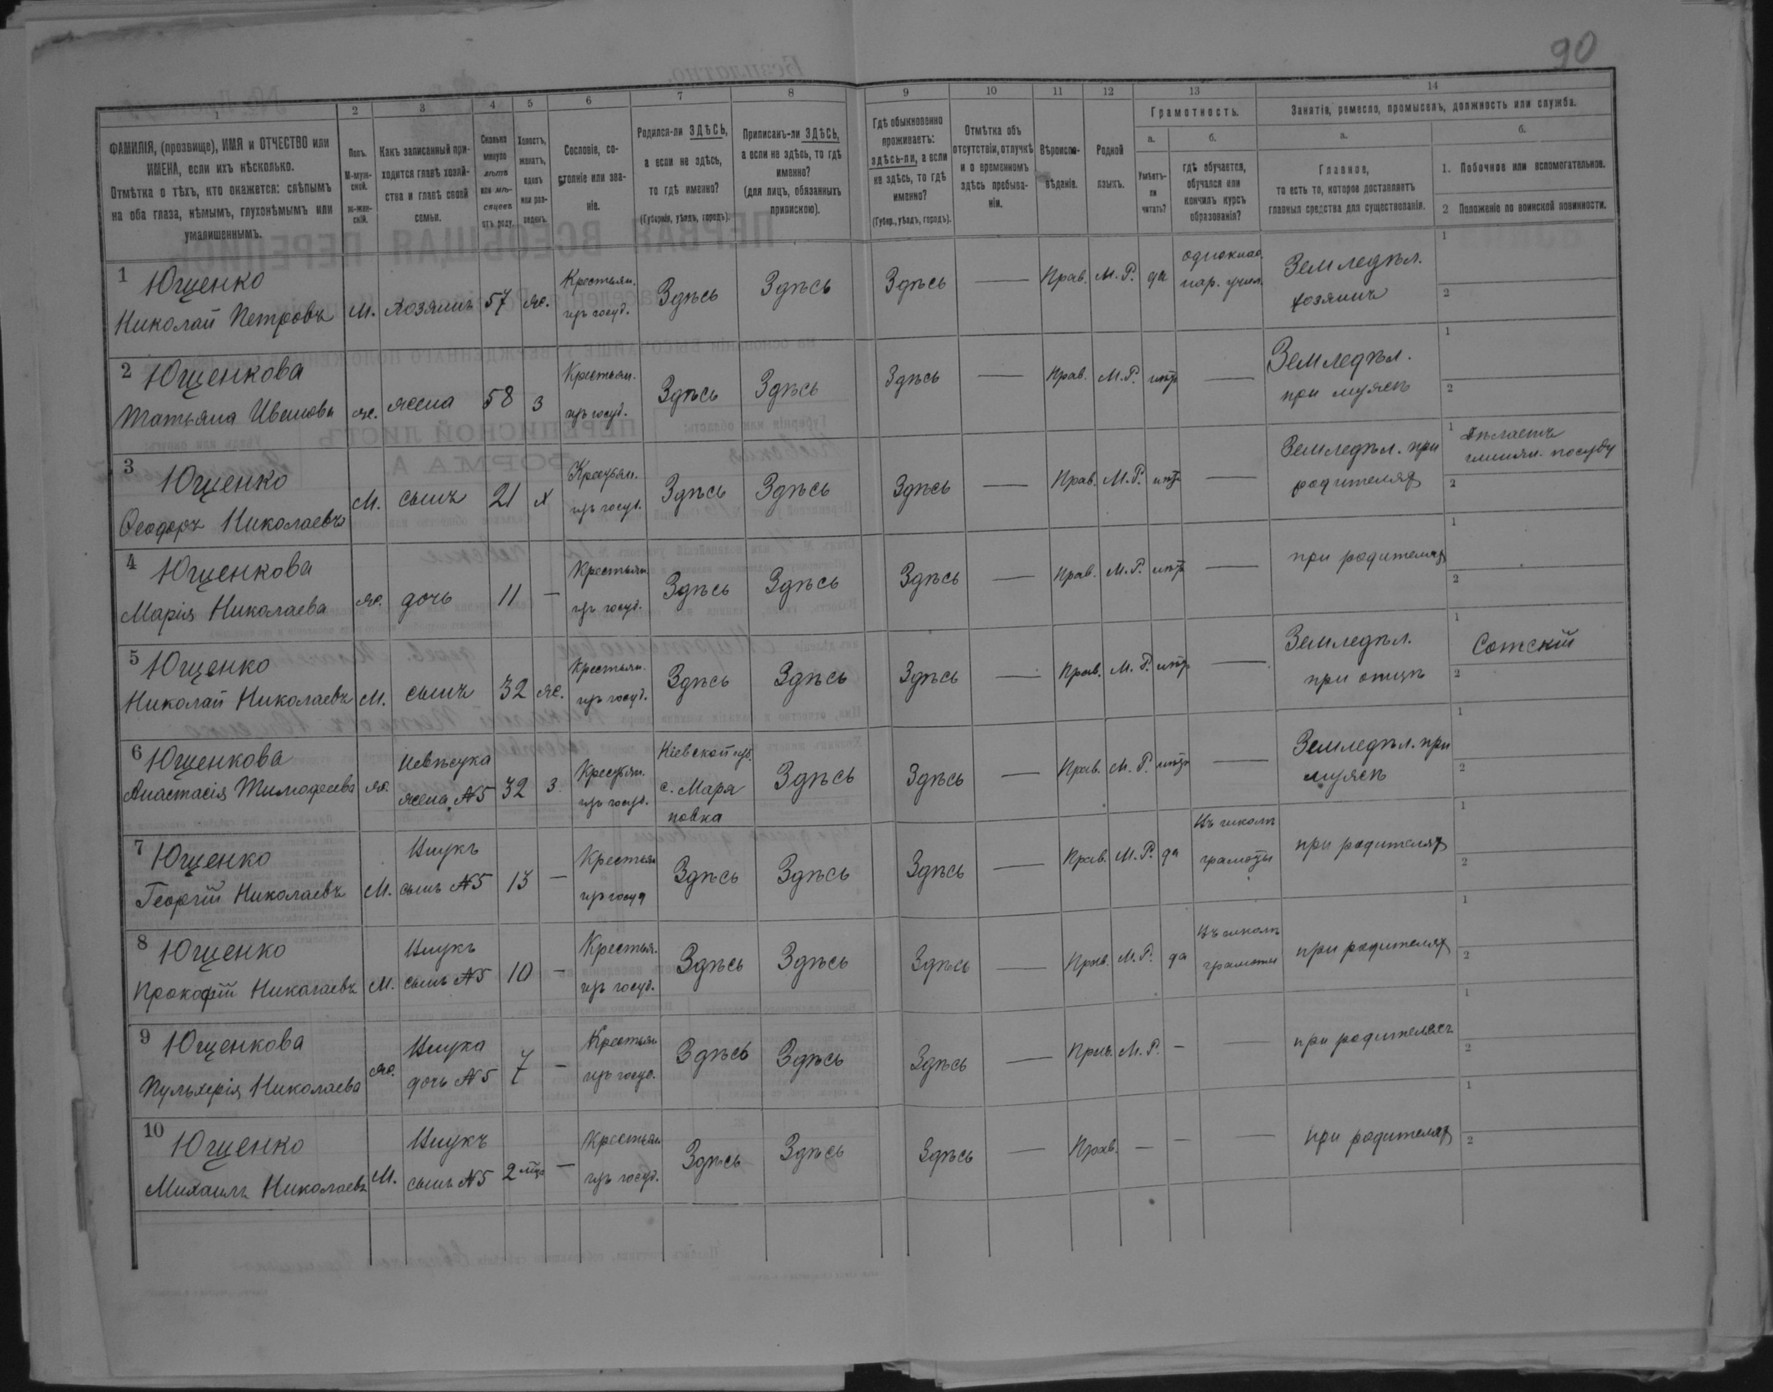 90
1 2 3 4 5 6 7 8 9 10 11 12 13 14
ФАМИЛІЯ, (прозвище), ИМЯ и ОТЧЕСТВО или
ИМЕНА, если ихъ нѣсколько.
Отмѣтка о тѣхъ, кто окажется: слѣпымъ
на оба глаза, нѣмымъ, глухонѣмымъ или
умалишеннымъ.
Полъ.
М-муж-
ской.
Ж-жен-
скій.
Какъ записанный при-
ходится главѣ хозяй-
ства и главѣ своей
семьи.
Сколько
минуло
лѣтъ
или мѣ-
сяцевъ
отъ роду.
Холостъ,
женатъ,
вдовъ
или раз-
веденъ.
Сословіе, со-
стояніе или зва-
ніе.
Родился-ли ЗДѢСЬ,
а если не здѣсь,
то гдѣ именно?
(Губернія, уѣздъ, городъ).
Приписанъ-ли ЗДѢСЬ,
а если не здѣсь, то гдѣ
именно?
(для лицъ, обязанныхъ
припискою).
Гдѣ обыкновенно
проживаетъ:
здѣсь-ли, а если
не здѣсь, то гдѣ
именно?
(Губер., уѣздъ, городъ).
Отмѣтка объ
отсутствіи, отлучкѣ
и о временномъ
здѣсь пребыва-
ніи.
Вѣроиспо-
вѣданіе.
Родной
языкъ.
Грамотность.
а.
Умѣетъ-
ли
читать?
б.
гдѣ обучается,
обучался или
кончилъ курсъ
образованія?
Занятія, ремесло, промыселъ, должность или служба.
а.
Главное,
то есть то, которое доставляетъ
главныя средства для существованія.
б.
1. Побочное или вспомогательное.
2 Положеніе по воинской повинности.
1 Ющенко
Николай Петровъ
М.
хозяинъ
57
же.
Крестьян.
изъ госуд.
Здѣсь
Здѣсь
Здѣсь
—
Прав.
М.Р.
да
однокла.
нар. учил.
Земледѣл.
хозяинъ
1
2
2 Ющенкова
Татьяна Иванова
же.
жена
58
з
Крестьян.
изъ госуд.
Здѣсь
Здѣсь
Здѣсь
—
Прав.
М.Р.
нѣтъ
—
Земледѣл.
при мужѣ
1
2
3 Ющенко
Ѳеодоръ Николаевъ
М.
сынъ
21
х
Крестьян.
изъ госуд.
Здѣсь
Здѣсь
Здѣсь
—
Прав.
М.Р.
нѣтъ
—
Земледѣл. при
родителях
1 Дѣлаетъ
глинян. посуду
2
4 Ющенкова
Марія Николаева
же.
дочь
11
—
Крестьян.
изъ госуд.
Здѣсь
Здѣсь
Здѣсь
—
Прав.
М.Р.
нѣтъ
—
при родителях
1
2
5 Ющенко
Николай Николаевъ
М.
сынъ
32
же.
Крестьян.
изъ госуд.
Здѣсь
Здѣсь
Здѣсь
—
Прав.
М.Р.
нѣтъ
—
Земледѣл.
при отцѣ
1 Сотскій
2
6 Ющенкова
Анастасія Тимофеева
же.
Невѣстка
жена №5
32
з.
Крестьян.
изъ госуд.
Кіевской губ.
с. Маря
новка
Здѣсь
Здѣсь
—
Прав.
М.Р.
нѣтъ
—
Земледѣл. при
мужѣ
1
2
7 Ющенко
Георгій Николаевъ
М.
Внукъ
сынъ №5
13
—
Крестьян
изъ госуд
Здѣсь
Здѣсь
Здѣсь
—
Прав.
М.Р.
да
Въ школѣ
грамоты
при родителях
1
2
8 Ющенко
Прокофій Николаевъ
М.
Внукъ
сынъ №5
10
—
Крестья.
изъ госуд.
Здѣсь
Здѣсь
Здѣсь
—
Прав.
М.Р.
да
Въ школѣ
грамоты
при родителях
1
2
9 Ющенкова
Пульхерія Николаева
же.
Внука
дочь №5
7
—
Крестьян
изъ госуд.
Здѣсь
Здѣсь
Здѣсь
—
Прав.
М.Р.
—
—
при родителяхъ
1
2
10 Ющенко
Михаилъ Николаевъ
М.
Внукъ
сынъ №5
2 мѣс
—
Крестьян
изъ госуд.
Здѣсь
Здѣсь
Здѣсь
—
Прав.
—
—
—
при родителях
1
2